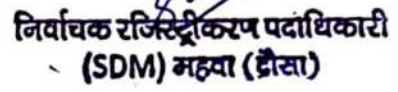 निर्वाचक रजिस्ट्रीकरण पदाधिकारी
(SDM) महवा (दौसा)